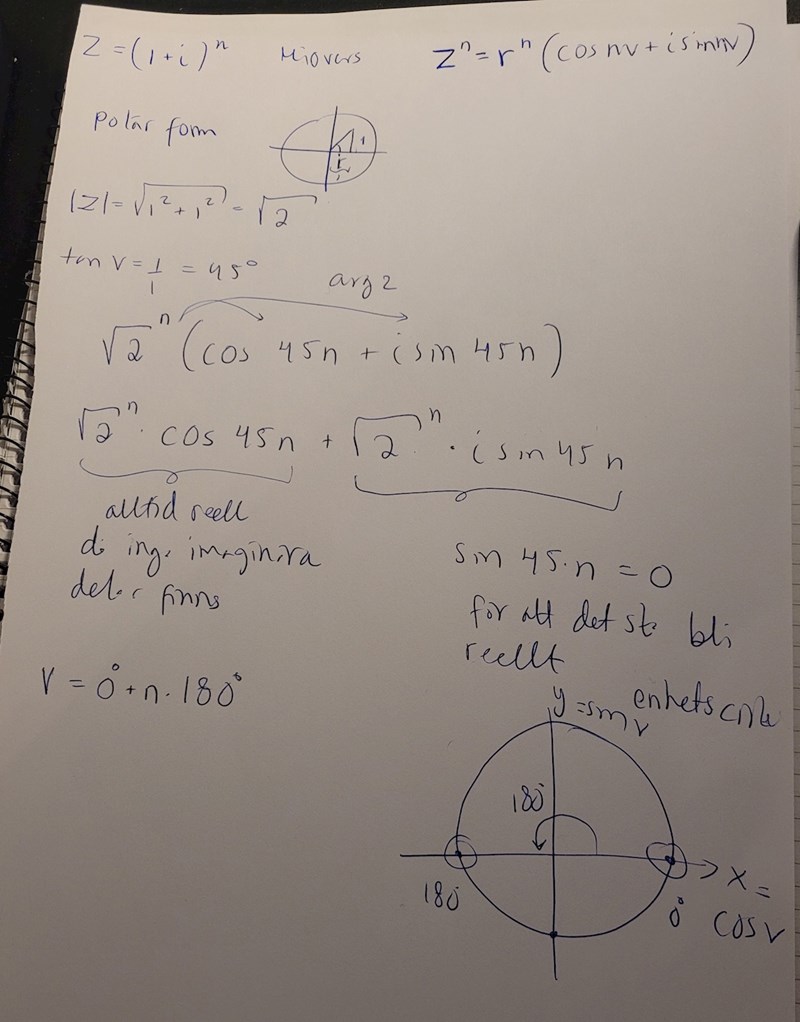 Z = (1+i)ⁿ
zⁿ = rⁿ (cos nv + i sin nv)
Polar form
|Z| = √(1² + 1²) = √2
tan v = 1/1 = 45°
arg z
√2ⁿ (cos 45n + i sin 45n)
√2ⁿ · cos 45n + √2ⁿ · i sin 45n
alltid reell
inga imaginära
delar finns
sin 45·n = 0
för att det ska bli
reellt
V = 0° + n·180°
y = sin v
180°
180°
0°
x =
cos v